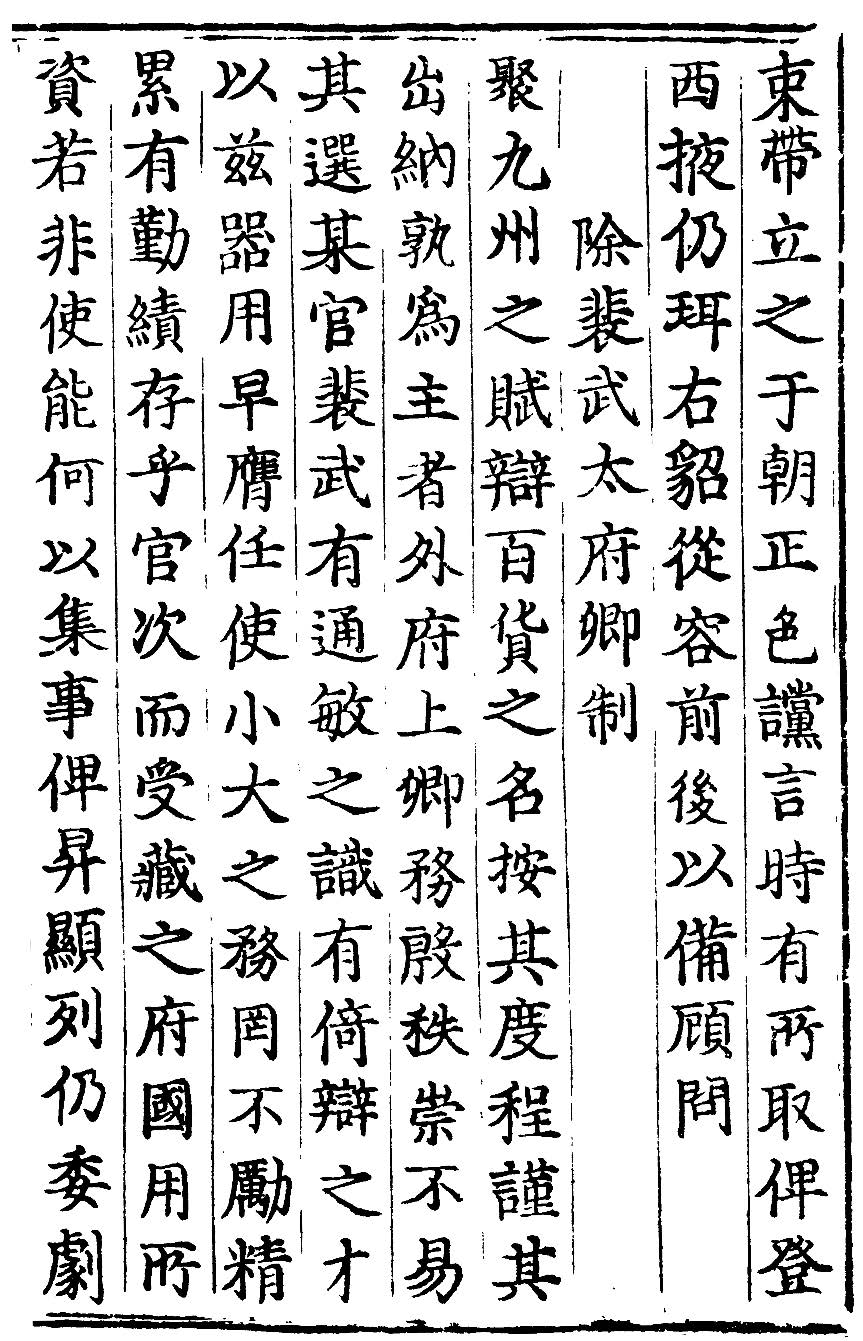 束帶立之于朝正色讜言時有所取俾登
西掖仍珥右貂從容前後以備顧問
除裴武太府卿制
聚九州之賦辯百貨之名按其度程謹其
出納孰爲主者外府上卿務殷秩崇不易
其選某官裴武有通敏之識有倚辯之才
以兹器用早膺任使小大之務罔不勵精
累有勤績存乎官次而受藏之府國用所
資若非使能何以集事俾昇顯列仍委劇